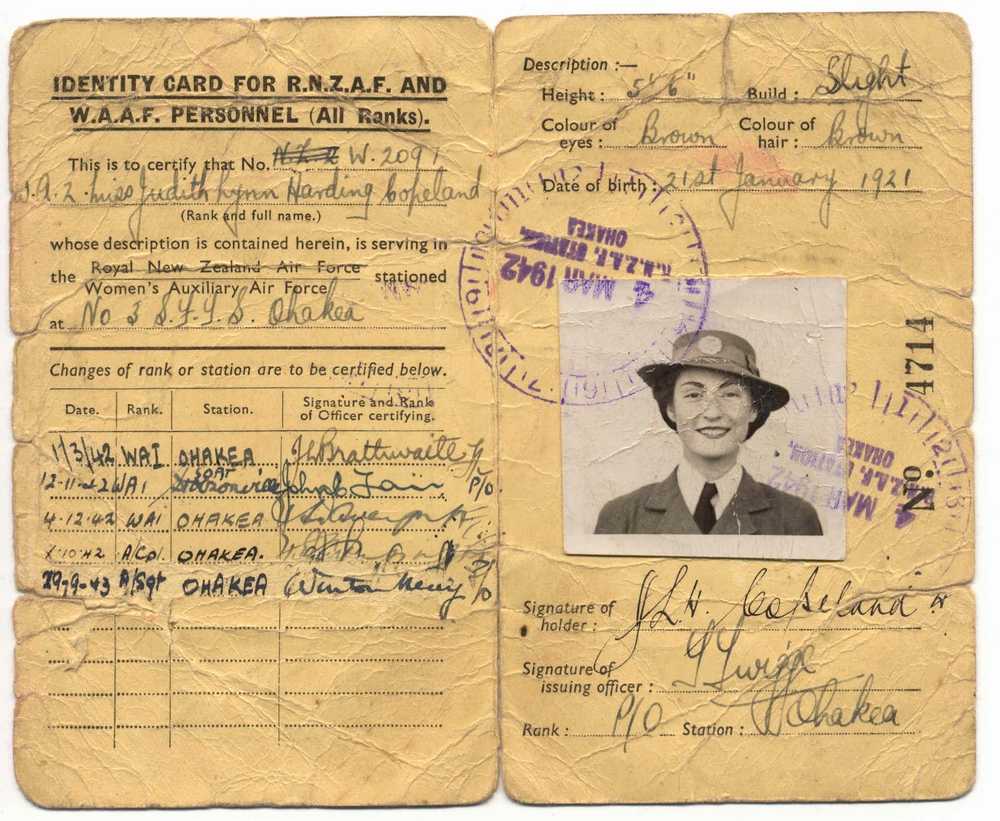 IDENTITY CARD FOR R.N.Z.A.F. AND
W.A.A.F. PERSONNEL (All Ranks).
This is to certify that No. N.Z. W. 2091
Miss Judith Lynn Harding Copeland
(Rank and full name.)
whose description is contained herein, is serving in
the Royal New Zealand Air Force stationed
Women's Auxiliary Air Force
at No 3 S.F.T.S. Ohakea
Changes of rank or station are to be certified below.
Date. Rank. Station. Signature and Rank of Officer certifying.
1/3/42 WAI OHAKEA
12-11-42 WAI P/O
4-12-42 WAI OHAKEA
10-42 A/Cpl. OHAKEA.
29-9-43 A/Sgt OHAKEA
Description :—
Height : 5' 6" Build : Slight
Colour of eyes : Brown Colour of hair : Brown
Date of birth : 21st January 1921
R.N.Z.A.F. STATION,
OHAKEA
4 MAR 1942
No 4714
R.N.Z.A.F. STATION,
OHAKEA
4 MAR 1942
Signature of holder : J L H. Copeland
Signature of issuing officer :
Rank : P/O Station : Ohakea